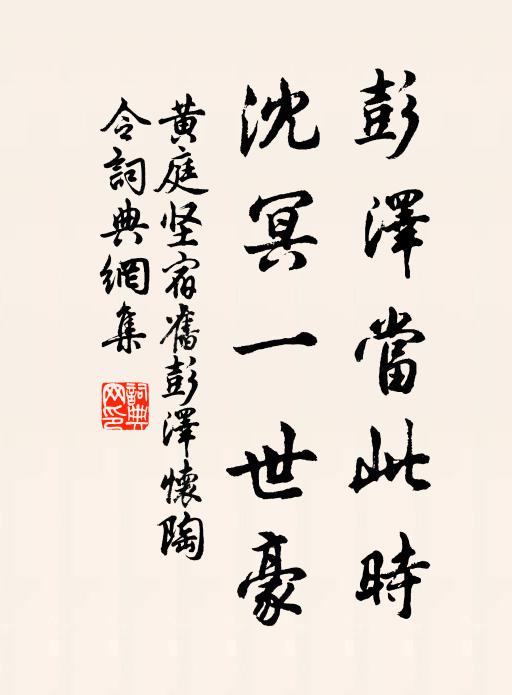 彭澤當此時
沈冥一世豪
黄庭坚宿舊彭澤懷陶
令詞典網集
詞典
网印